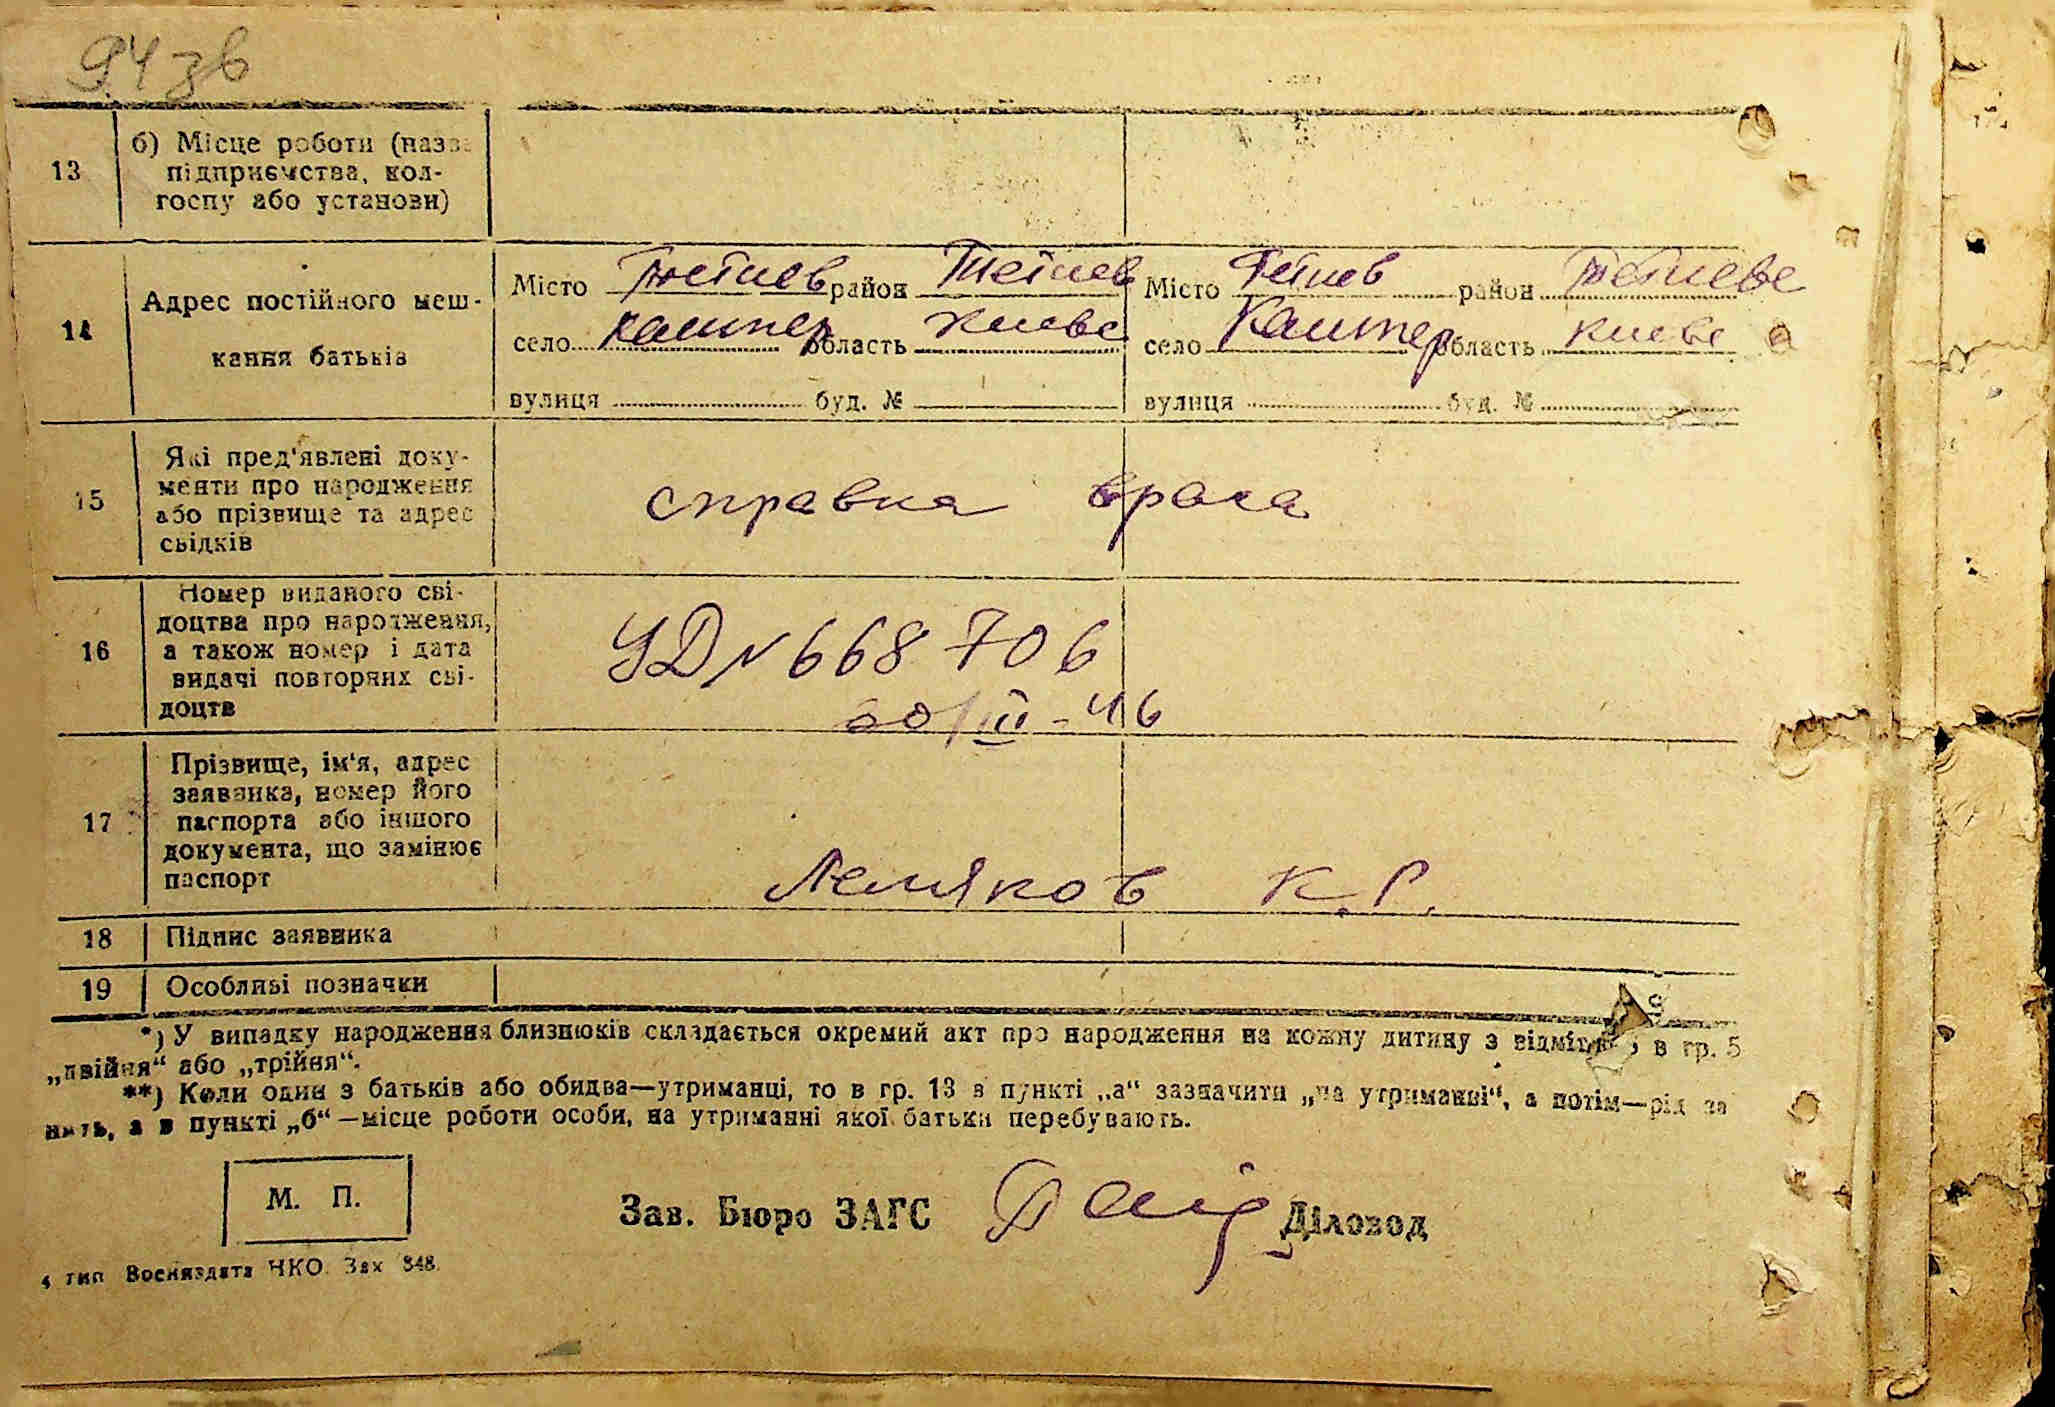 94 зв
13
б) Місце роботи (назва
підприємства, кол-
госпу або установи)
14
Адрес постійного меш-
кання батьків
Місто Тетиев район Тетиев Місто Тетиев район Тетиевс
село Кашпер область Киевс село Кашпер область Киевс
вулиця буд. № вулиця буд. №
15
Які пред'явлені доку-
менти про народження
або прізвище та адрес
свідків
справка врача
16
Номер виданого сві-
доцтва про народження,
а також номер і дата
видачі повторних сві-
доцтв
УД N 668706
20/III-46
17
Прізвище, ім'я, адрес
заявника, номер його
паспорта або іншого
документа, що замінює
паспорт
К. Г.
18 Підпис заявника
19 Особливі позначки
*) У випадку народження близнюків складається окремий акт про народження на кожну дитину з відміткою в гр. 5
„двійня“ або „трійня“.
**) Коли один з батьків або обидва—утриманці, то в гр. 13 в пункті „а“ зазначити „на утриманні“, а потім—рід за
нять, а в пункті „б“—місце роботи особи, на утриманні якої батьки перебувають.
М. П.
Зав. Бюро ЗАГС Діловод
4 тип Воениздата НКО. Зак 848.